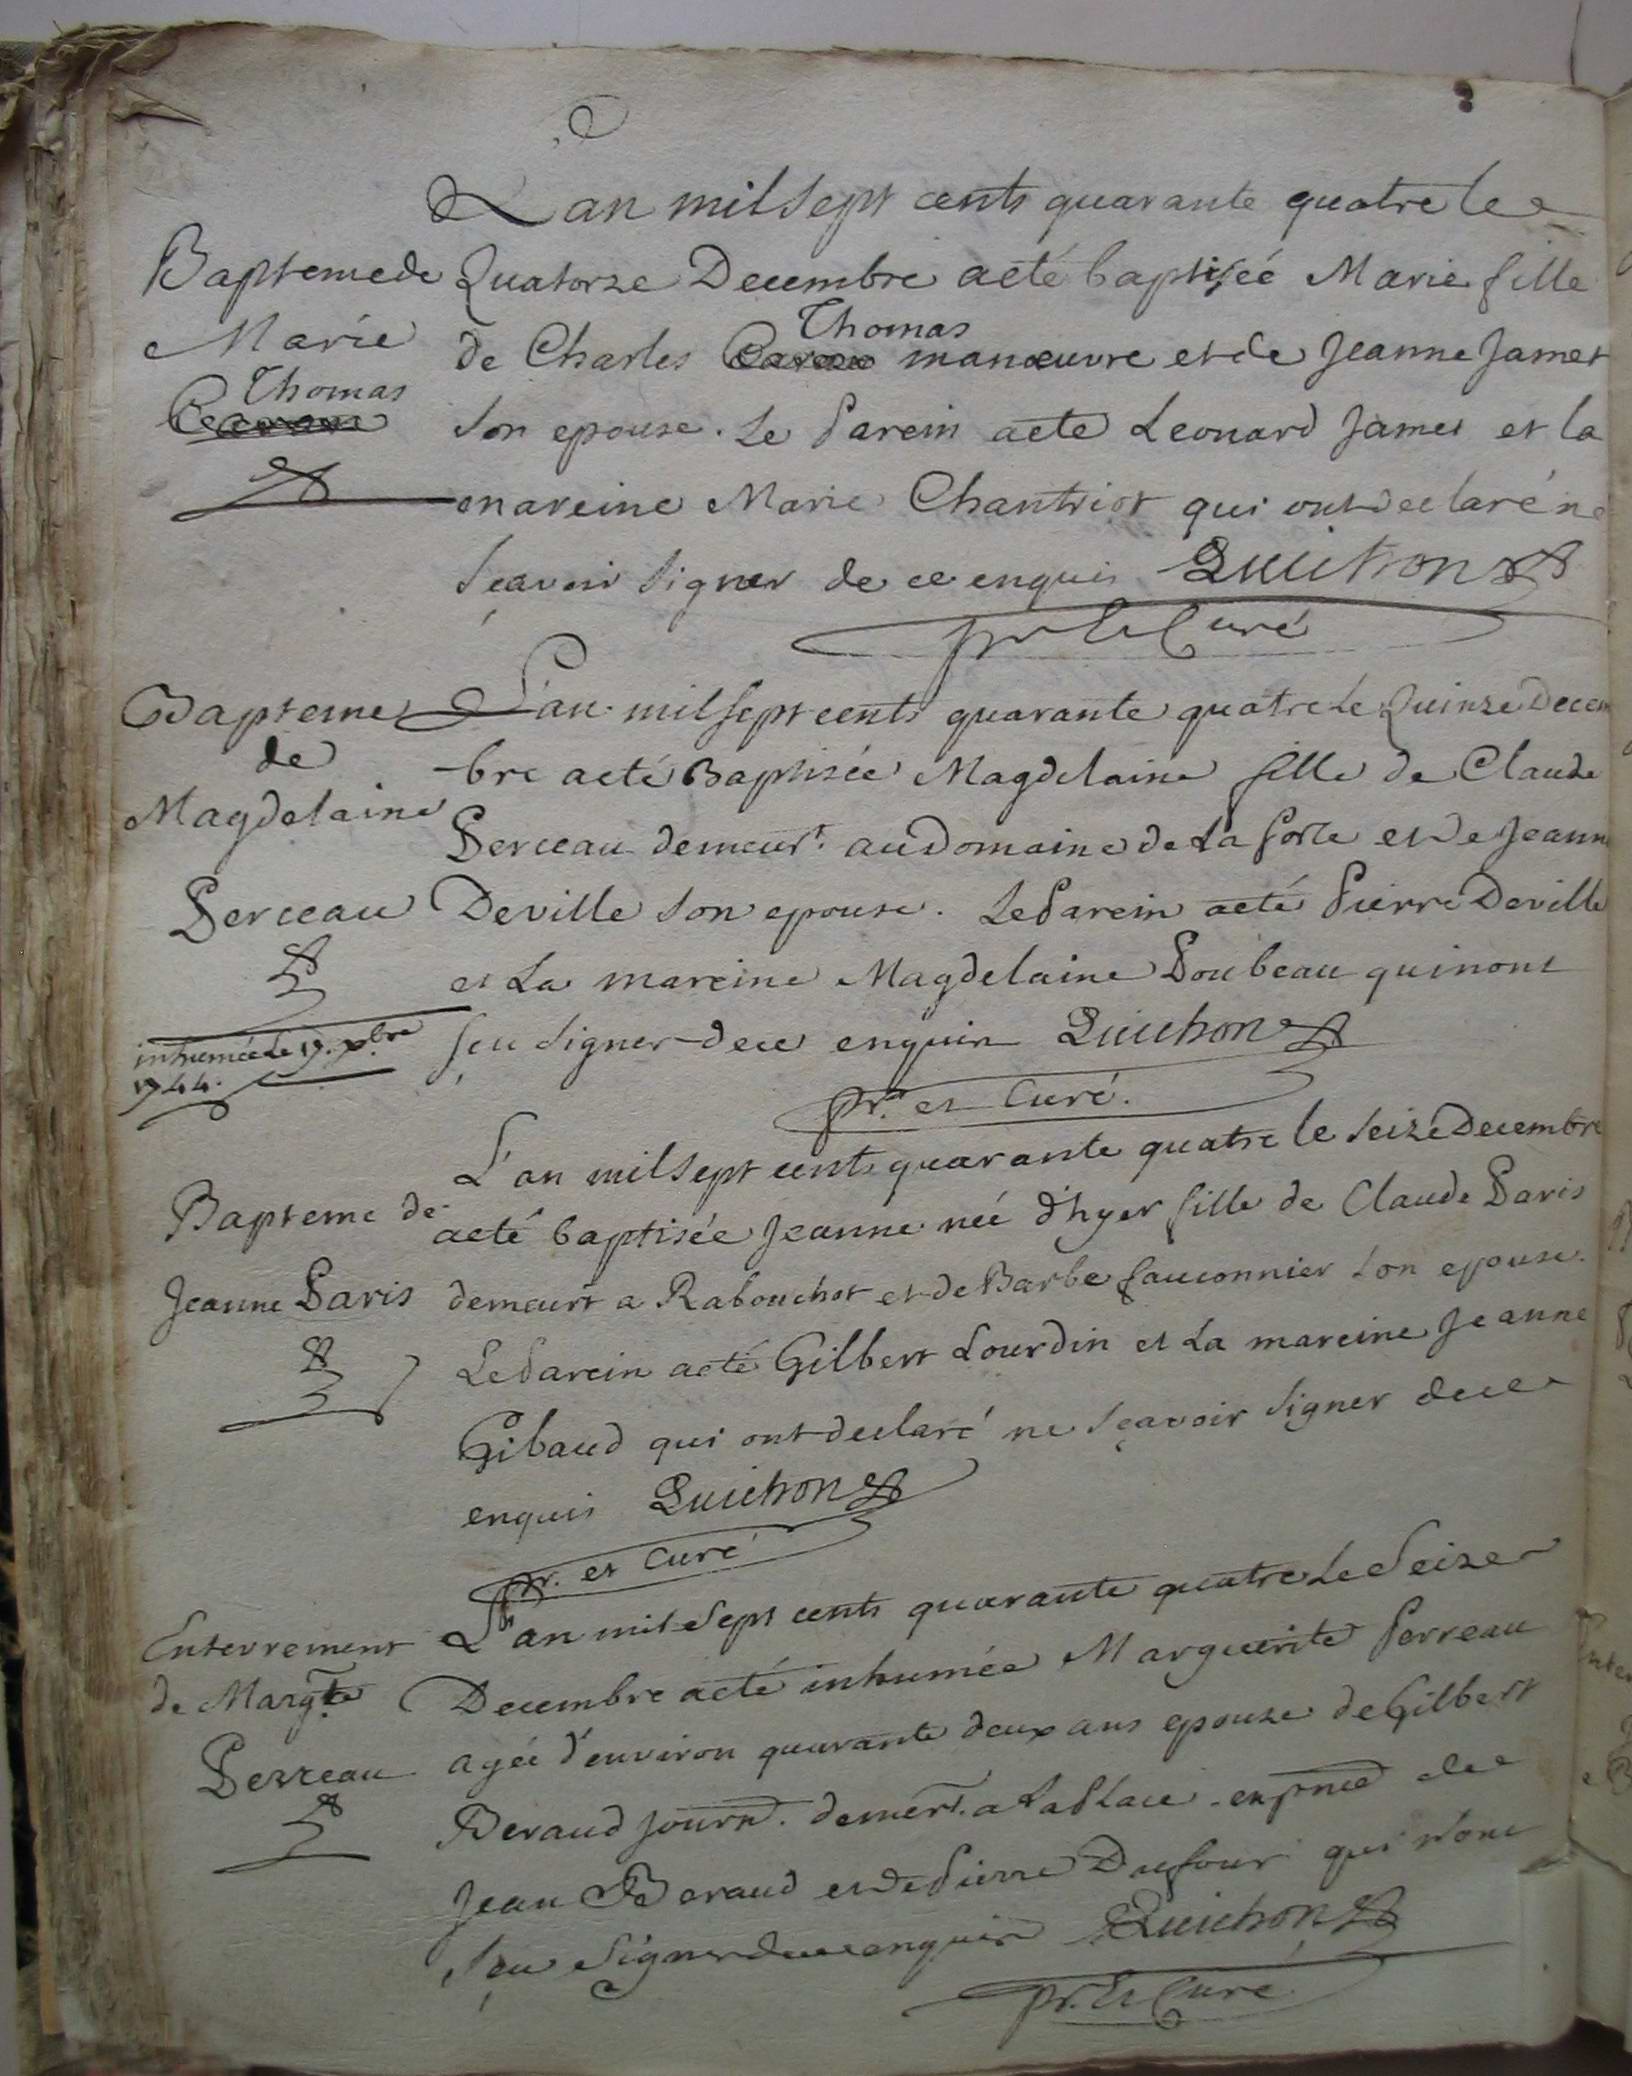 L'an mil Sept cents quarante quatre le
Bapteme de
Marie
Thomas
Quatorze Decembre a eté baptisée Marie fille
Thomas
de Charles manœuvre et de Jeanne Jamet
Son epouse. Le Parein a eté Leonard Jamet et la
mareine Marie Chantriot qui ont declaré ne
Sçavoir Signer de ce enquis Quichon
pr et Curé
Bapteme
de
Magdelaine
Perceau
inhumée le 17. xbre
1744.
L'an mil Sept cents quarante quatre Le Quinze Decem
-bre a eté Baptisée Magdelaine fille de Claude
Perceau demeurt. au Domaine de La forte et de Jeanne
Deville Son epouse. Le Parein a eté Pierre Deville
et La mareine Magdelaine Poubeau qui n'ont
Sçu Signer de ce enquis Quichon
pr. et Curé.
Bapteme de
Jeanne Paris
L'an mil Sept cents quarante quatre le Seize Decembre
a eté baptisée Jeanne née d'hyer fille de Claude Paris
demeurt a Rabouchot et de Barbe fauconnier Son epouse.
Le Parein a eté Gilbert Lourdin et La mareine Jeanne
Gibaud qui ont declaré ne Sçavoir Signer de ce
enquis Quichon
pr. et Curé
Enterrement
de Margte
Perreau
L'an mil Sept cents quarante quatre Le Seize
Decembre a eté inhumée Marguerite Perreau
agée d'environ quarante deux ans epouse de Gilbert
Beraud journ. demeurt. a La Place. en pnce de
Jean Beraud et de Pierre Dufour qui n'ont
Sçu Signer de ce enquis Quichon
pr. et Curé